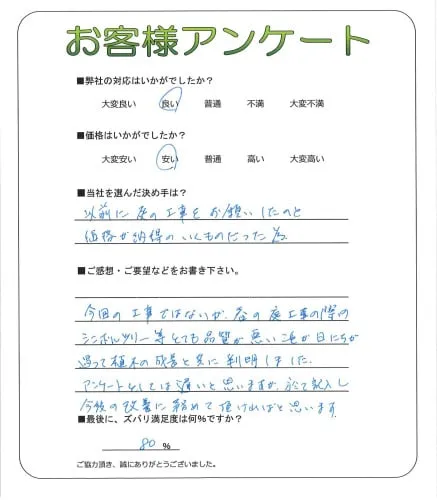 お客様アンケート
■弊社の対応はいかがでしたか？
大変良い 良い 普通 不満 大変不満
■価格はいかがでしたか？
大変安い 安い 普通 高い 大変高い
■当社を選んだ決め手は？
以前に庭の工事をお願いしたのと
価格が納得のいくものだった為
■ご感想・ご要望などをお書き下さい。
今回の工事ではないが、春の庭工事の際の
シンボルツリー等とても品質が悪い事が日にちが
過って植木の成長と共に判明しました。
アンケートとしては遅いと思いますが、 記入し
今後の改善に努めて頂ければと思います。
■最後に、ズバリ満足度は何％ですか？
80 ％
ご協力頂き、誠にありがとうございました。